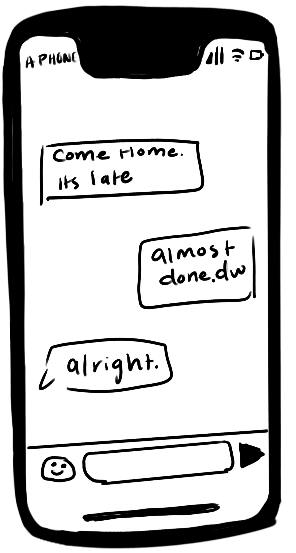 A PHONE
Come Home.
its late
almost
done.dw
alright.